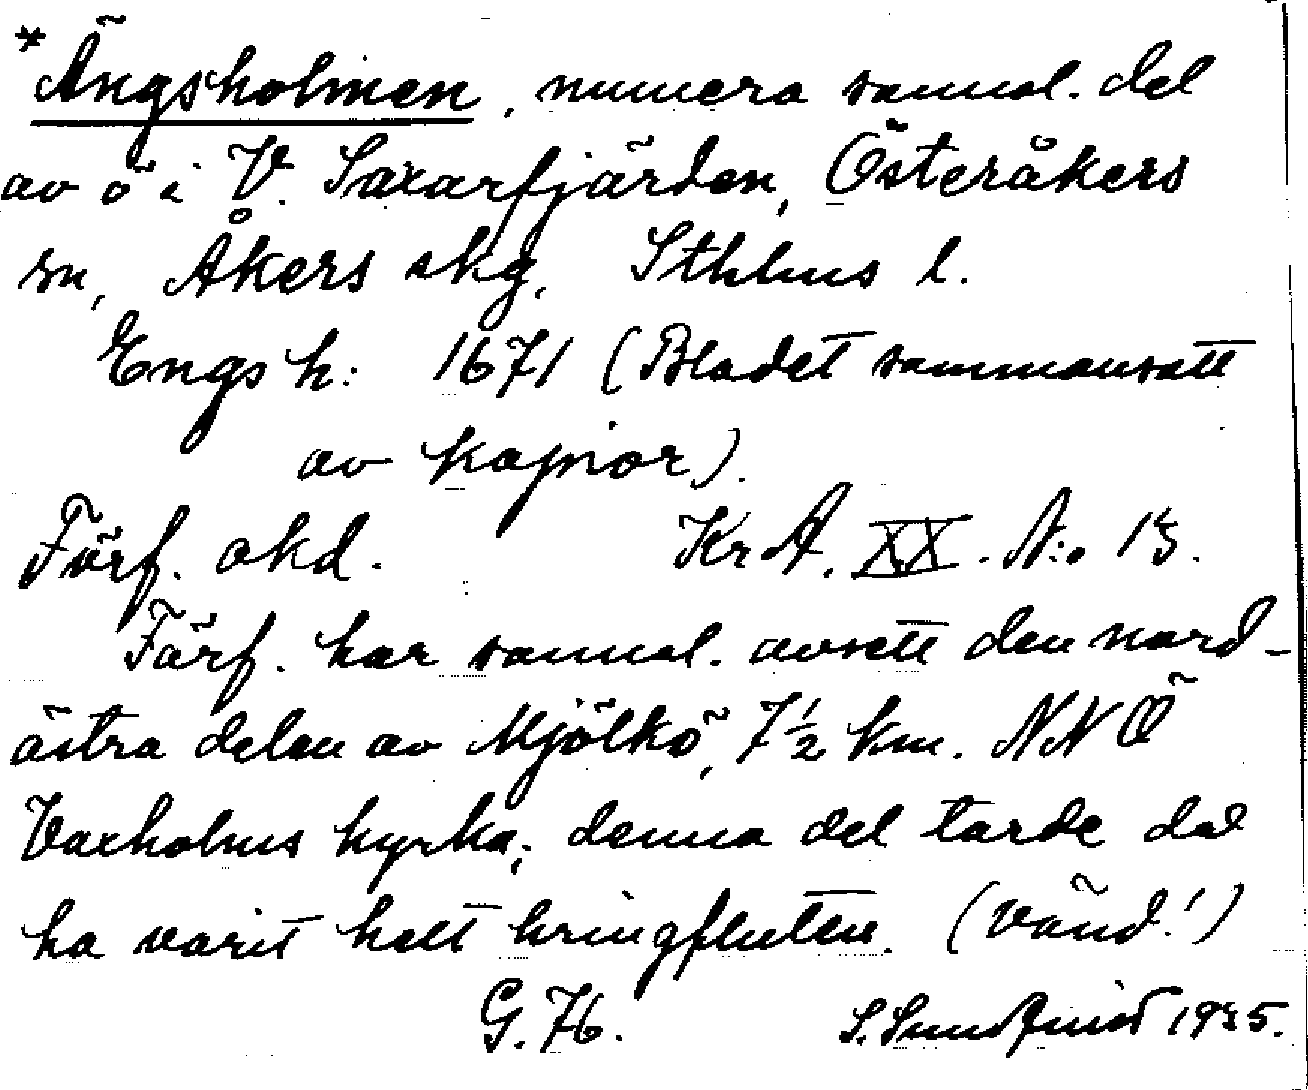 *Ängsholmen, numera sannol. del
av ö i V. Saxarfjärden, Österåkers
sn, Åkers skg, Sthlms l.
Engsh: 1671 (Bladet sammansatt
av kopior).
Förf. okd. KrA. XX. N:o 13.
Förf. har sannol. avsett den nord-
östra delen av Mjölkö, 7½ km. NNÖ
Vaxholms kyrka; denna del torde då
ha varit helt kringfluten. (Vänd!)
G. 76. S. Sundquist 1935.